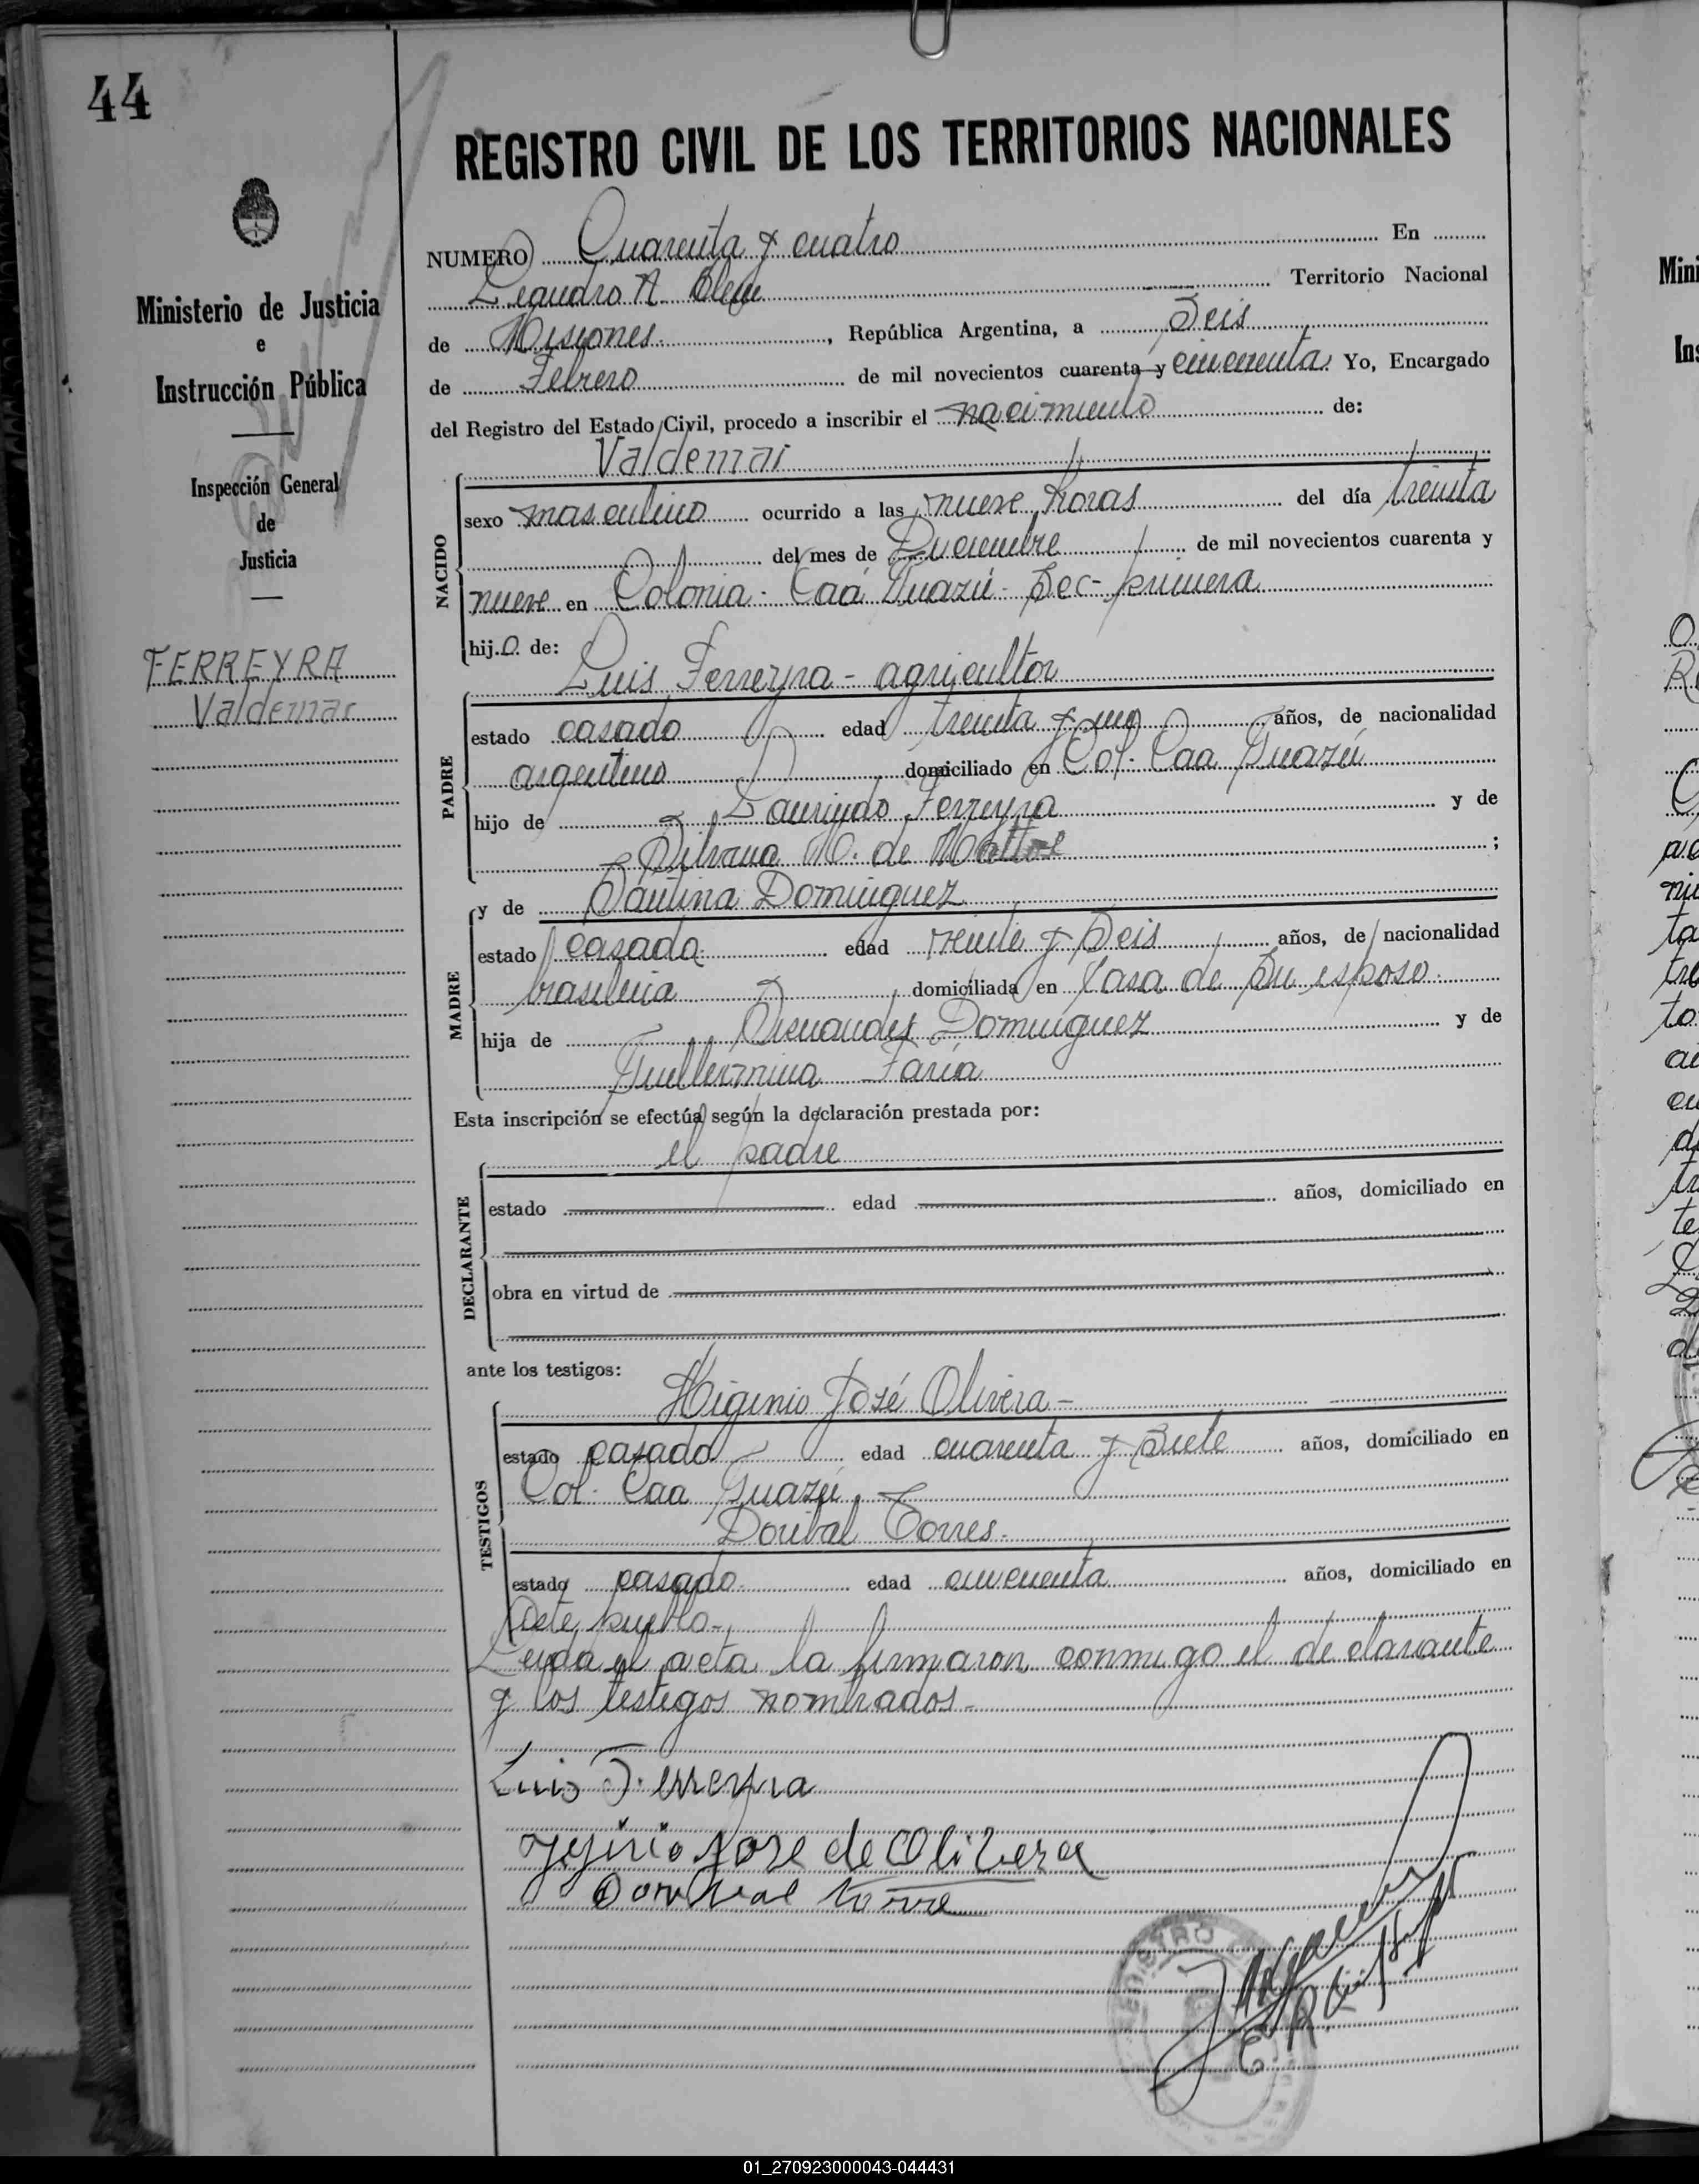 44
REGISTRO CIVIL DE LOS TERRITORIOS NACIONALES
Ministerio de Justicia
e
Instrucción Pública
Inspección General
de
Justicia
FERREYRA
Valdemar
NUMERO Cuarenta y cuatro En
Leandro N. Alem Territorio Nacional
de Misiones. , República Argentina, a Seis
de Febrero de mil novecientos cuarenta y cincuenta. Yo, Encargado
del Registro del Estado Civil, procedo a inscribir el nacimiento de:
Valdemar
NACIDO
sexo masculino ocurrido a las nueve horas del día treinta
del mes de Diciembre de mil novecientos cuarenta y
nueve en Colonia - Caá Guazú - Sec - primera
hijo de:
Luis Ferreyra - agricultor
PADRE
estado casado edad treinta y uno años, de nacionalidad
argentino domiciliado en Col. Caa Guazú
hijo de Laurindo Ferreyra y de
Silvana M. de Mattos ;
y de Paulina Dominguez
MADRE
estado casada. edad veinte y Seis años, de nacionalidad
brasilera domiciliada en Casa de Su esposo.
hija de Dominguez y de
Guillermina Faría
Esta inscripción se efectúa según la declaración prestada por:
el padre
DECLARANTE
estado edad años, domiciliado en
obra en virtud de
ante los testigos:
Higinio José Olivera -
TESTIGOS
estado casado edad cuarenta y Siete años, domiciliado en
Col. Caa Guazú
Doribal Torres.
estado casado. edad cincuenta años, domiciliado en
Este pueblo.
Leida el acta la firmaron conmigo el declarante
y los testigos nombrados.-
Luis Ferreyra
José de Olivera
torre
REGISTRO
01_270923000043-044431